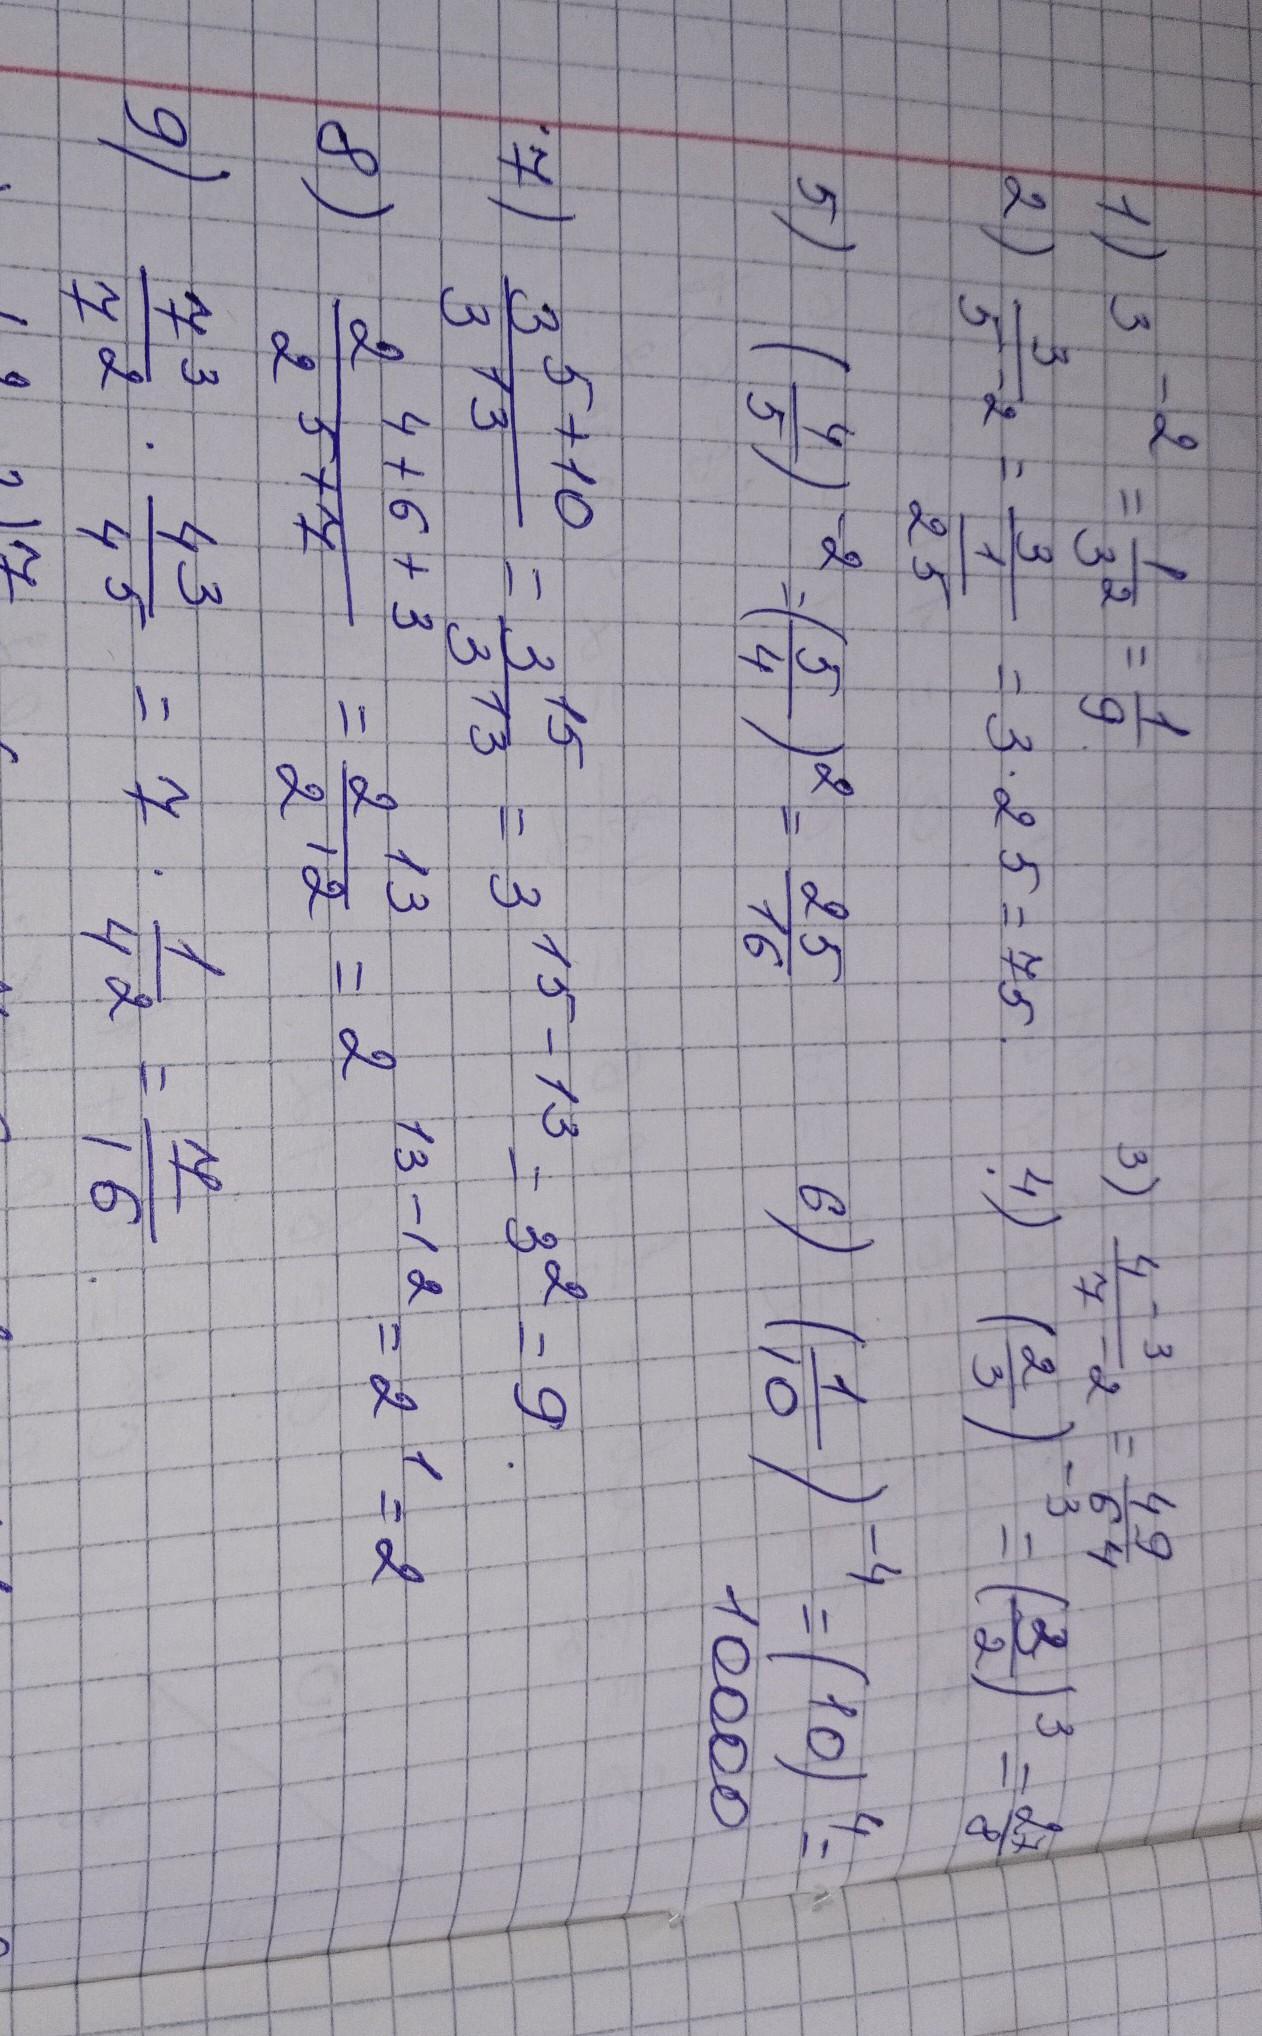 1) 3^-2 = 1/3^2 = 1/9.
2) 3/5^-2 = 3/(1/25) = 3·25 = 75.
3) 4^-3/7^-2 = 49/64
4) (2/3)^-3 = (3/2)^3 = 27/8
5) (4/5)^-2 = (5/4)^2 = 25/16
6) (1/10)^-4 = (10)^4 =
10000
7) 3^5+10/3^13 = 3^15/3^13 = 3^15-13 = 3^2 = 9.
8) 2^4+6+3/2^5+7 = 2^13/2^12 = 2^13-12 = 2^1 = 2
9) 7^3/7^2 · 4^3/4^5 = 7 · 1/4^2 = 7/16.